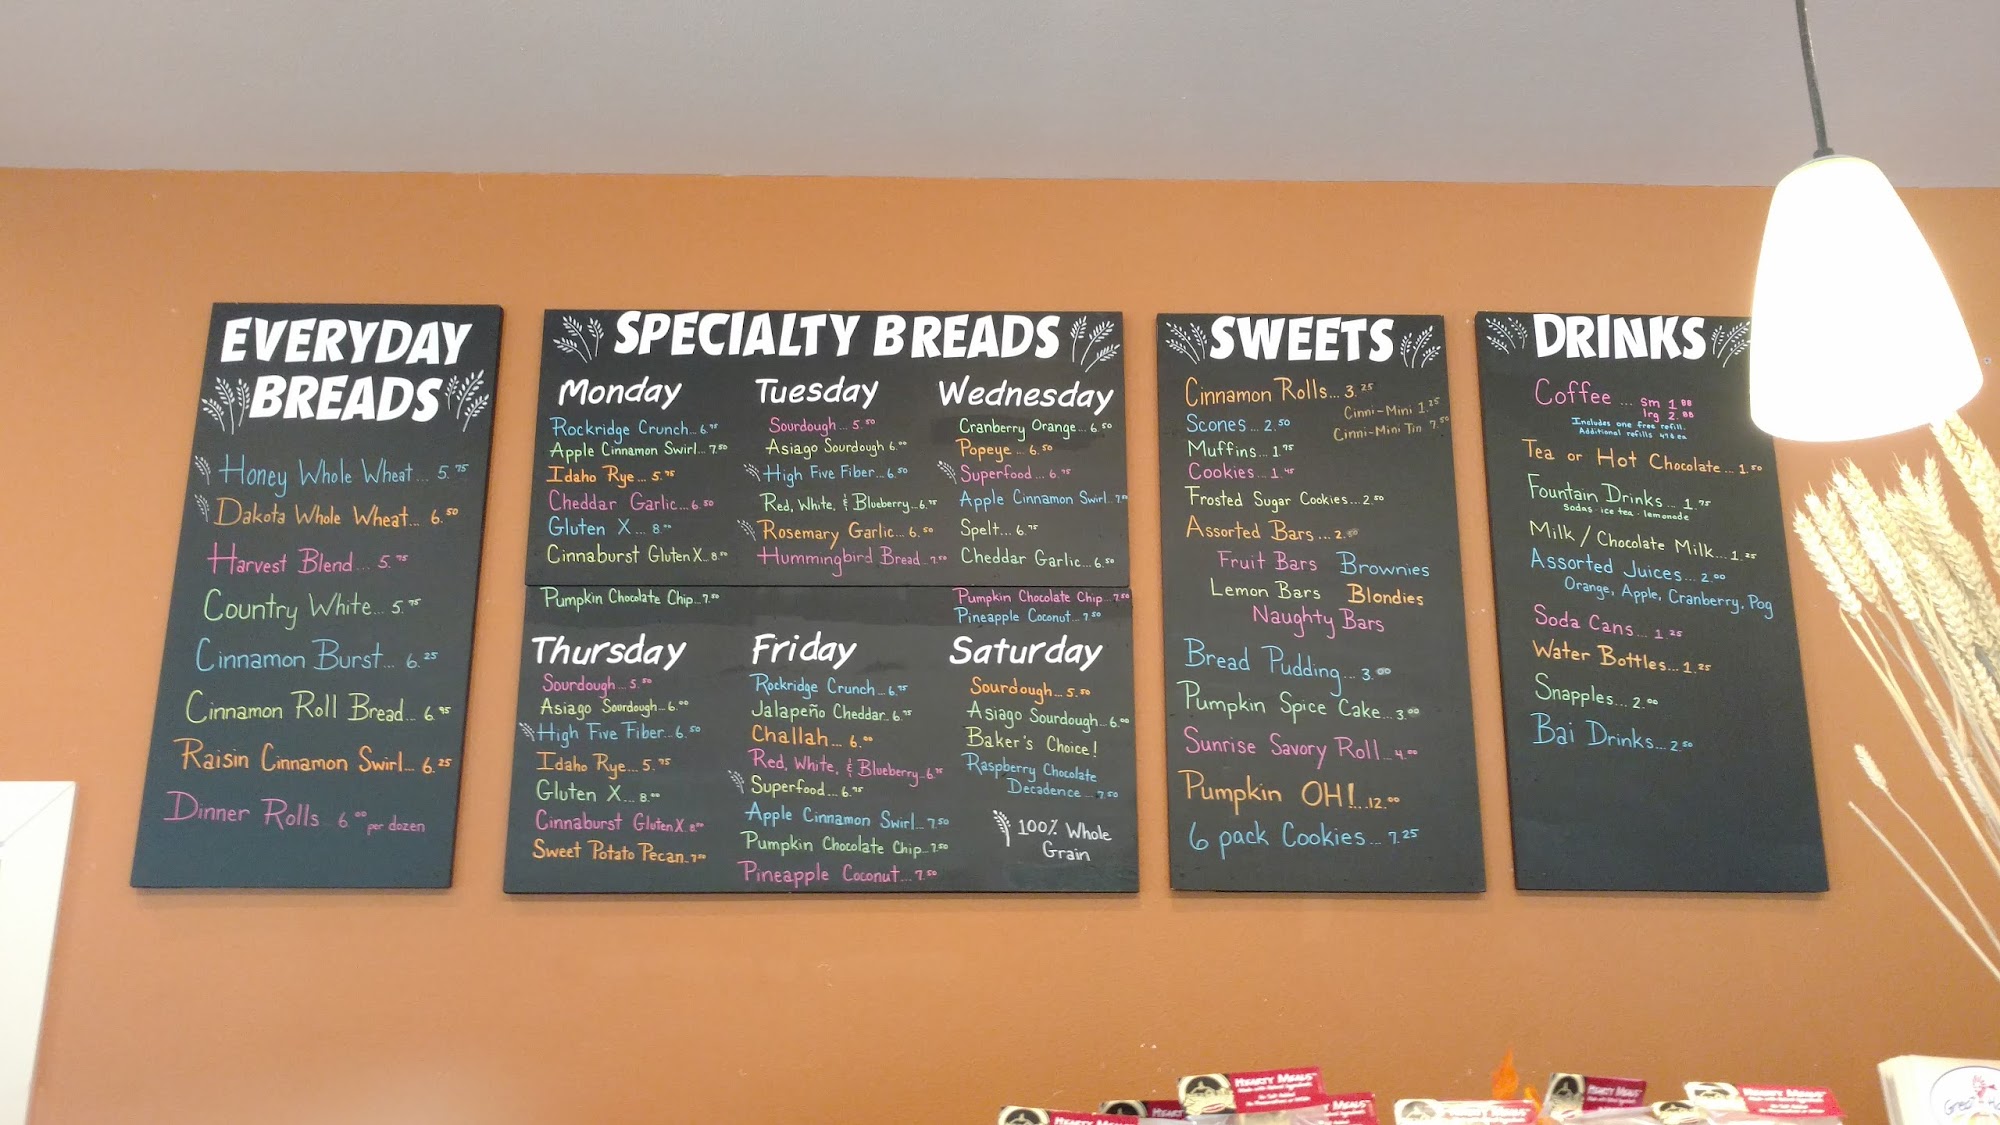 EVERYDAY
BREADS
Honey Whole Wheat... 5.75
Dakota Whole Wheat... 6.50
Harvest Blend... 5.75
Country White... 5.75
Cinnamon Burst... 6.25
Cinnamon Roll Bread... 6.95
Raisin Cinnamon Swirl... 6.25
Dinner Rolls 6.00 per dozen
SPECIALTY BREADS
Monday
Rockridge Crunch... 6.75
Apple Cinnamon Swirl... 7.50
Idaho Rye... 5.75
Cheddar Garlic... 6.50
Gluten X... 8.00
Cinnaburst Gluten X... 8.50
Pumpkin Chocolate Chip... 7.50
Tuesday
Sourdough... 5.50
Asiago Sourdough 6.00
High Five Fiber... 6.50
Red, White, & Blueberry... 6.75
Rosemary Garlic... 6.50
Hummingbird Bread... 7.50
Wednesday
Cranberry Orange... 6.50
Popeye... 6.50
Superfood... 6.75
Apple Cinnamon Swirl... 7.50
Spelt... 6.75
Cheddar Garlic... 6.50
Pumpkin Chocolate Chip... 7.50
Pineapple Coconut... 7.50
Thursday
Sourdough... 5.50
Asiago Sourdough... 6.00
High Five Fiber... 6.50
Idaho Rye... 5.75
Gluten X... 8.00
Cinnaburst Gluten X
Sweet Potato Pecan... 7.50
Friday
Rockridge Crunch... 6.75
Jalapeño Cheddar... 6.75
Challah... 6.00
Red, White, & Blueberry... 6.75
Superfood... 6.75
Apple Cinnamon Swirl... 7.50
Pumpkin Chocolate Chip... 7.50
Pineapple Coconut... 7.50
Saturday
Sourdough... 5.50
Asiago Sourdough... 6.00
Baker's Choice!
Raspberry Chocolate
Decadence... 7.50
100% Whole
Grain
SWEETS
Cinnamon Rolls... 3.25
Cinni-Mini 1.25
Cinni-Mini Tin 7.50
Scones... 2.50
Muffins... 1.75
Cookies... 1.45
Frosted Sugar Cookies... 2.50
Assorted Bars... 2.50
Fruit Bars Brownies
Lemon Bars Blondies
Naughty Bars
Bread Pudding... 3.00
Pumpkin Spice Cake... 3.00
Sunrise Savory Roll... 4.00
Pumpkin OH!... 12.00
6 pack Cookies... 7.25
DRINKS
Coffee... sm 1.88
lrg 2.88
Includes one free refill.
Additional refills 47¢ ea
Tea or Hot Chocolate... 1.50
Fountain Drinks... 1.75
Sodas · ice tea · lemonade
Milk / Chocolate Milk... 1.25
Assorted Juices... 2.00
Orange, Apple, Cranberry, Pog
Soda Cans... 1.25
Water Bottles... 1.25
Snapples... 2.00
Bai Drinks... 2.50
HEARTY MEALS
HEARTY MEALS
HEARTY MEALS